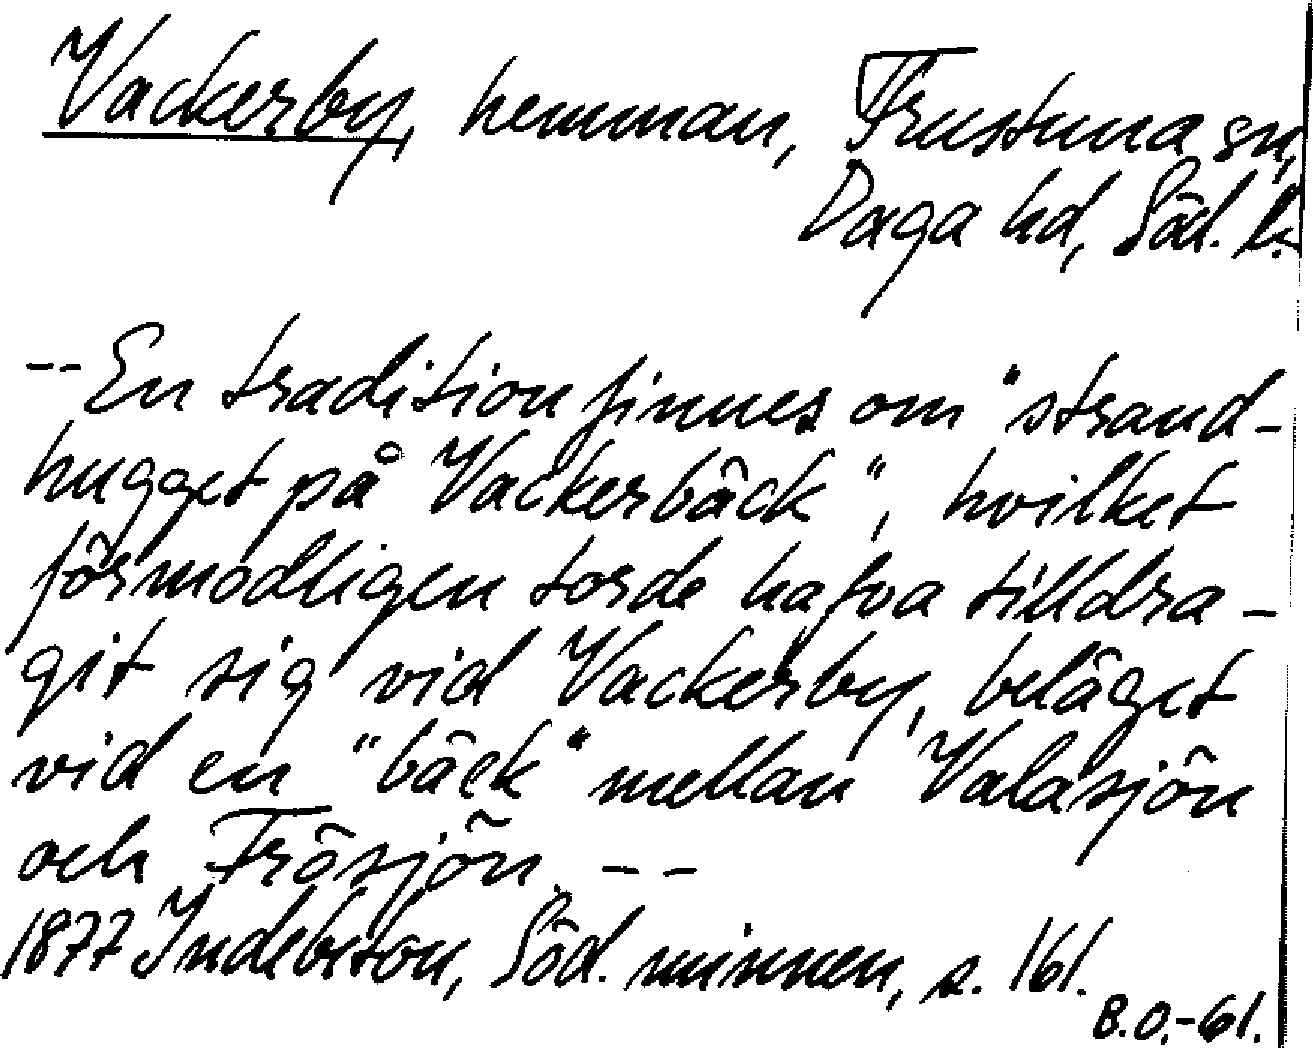 Vackerby, hemman, Frustuna sn,
Daga hd, Söd. l.
-- En tradition finnes om "strand-
hugget på Vackerbäck", hvilket
förmodligen torde hafva tilldra-
git sig vid Vackerby, beläget
vid en "bäck" mellan Valasjön
och Frösjön. --
1877 Indebetou, Söd. minnen, s. 161.
B.O.-61.